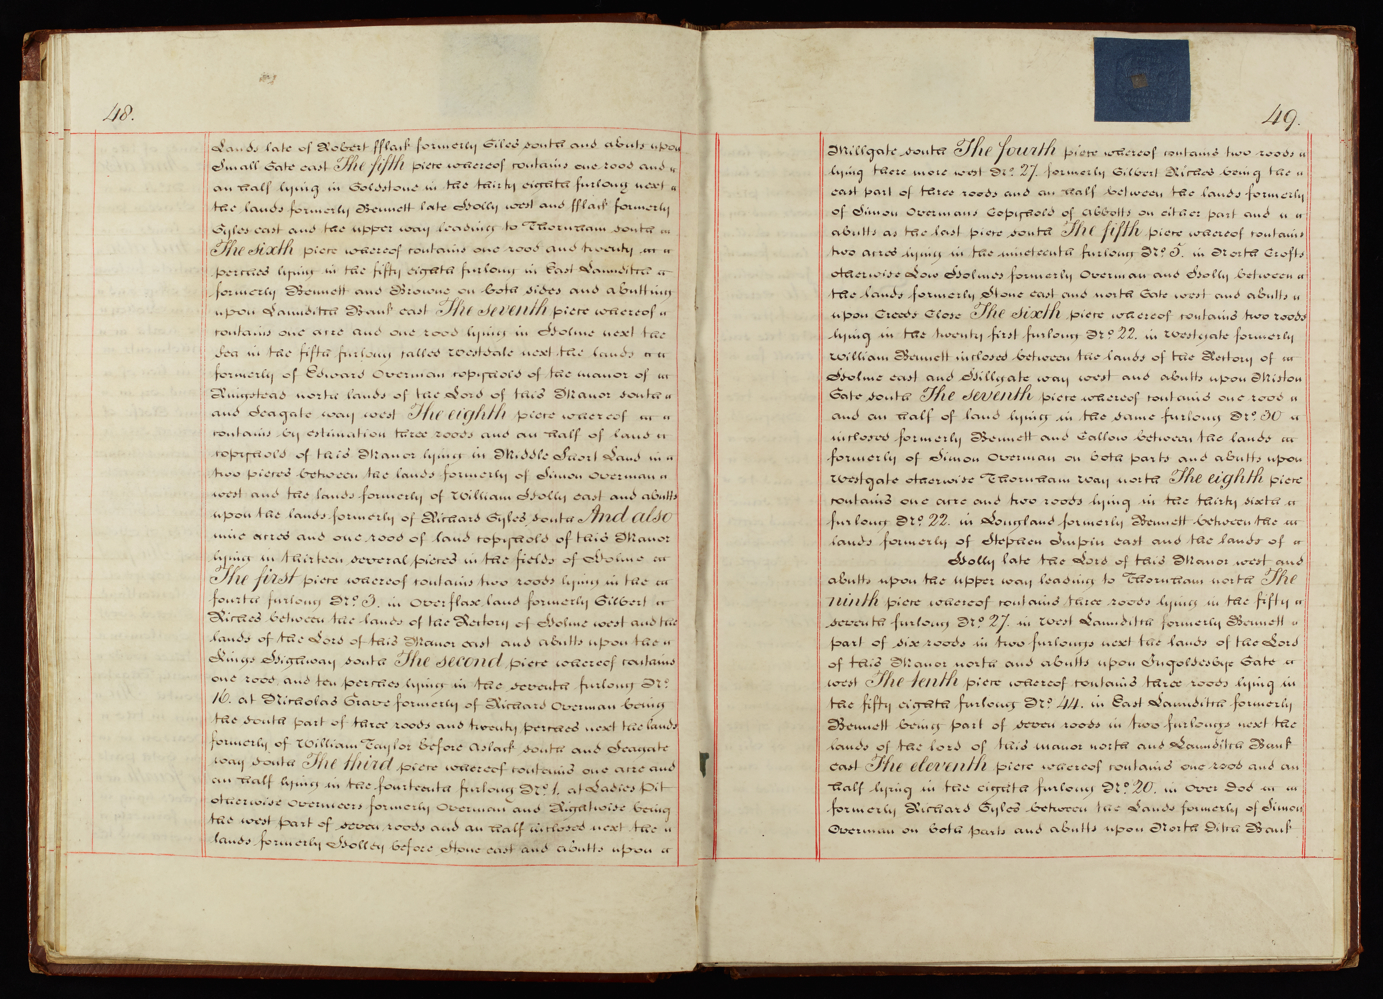 48.
Lands late of Robert fflaik formerly Giles south and abuts upon
Small Gate east The fifth piece whereof contains one rood and
an half lying in Goldstone in the thirty eighth furlong next
the lands formerly Bennett late Holly west and fflaik formerly
Gyles east and the upper way leading to Thornham south
The sixth piece whereof contains one rood and twenty
perches lying in the fifty eighth furlong in East Launditch
formerly Bennett and Browne on both sides and abutting
upon Launditch Bank east The seventh piece whereof
contains one acre and one rood lying in Holme next the
Sea in the fifth furlong called Westdale next the lands
formerly of Edward Overman copyhold of the manor of
Ringstead north lands of the Lord of this Manor south
and Seagate way west The eighth piece whereof
contains by estimation three roods and an half of land
copyhold of this Manor lying in Middle Short Land in
two pieces between the lands formerly of Simon Overman
west and the lands formerly of William Holly east and abutts
upon the lands formerly of Richard Gyles south And also
nine acres and one rood of land copyhold of this Manor
lying in thirteen several pieces in the fields of Holme
The first piece whereof contains two roods lying in the
fourth furlong No. 3. in Overflax land formerly Gilbert
Riches between the lands of the Rectory of Holme west and the
lands of the Lord of this Manor east and abutts upon the
Kings Highway south The second piece whereof contains
one rood and ten perches lying in the seventh furlong No.
16. at Nicholas Grave formerly of Richard Overman being
the south part of three roods and twenty perches next the lands
formerly of William Taylor before Aslack south and Seagate
way south The third piece whereof contains one acre and
an half lying in the fourteenth furlong No. 1. at Ladies Pit
otherwise Overmeers formerly Overman and Rightwise being
the west part of seven roods and an half inclosed next the
lands formerly Holley before Stone east and abutts upon
49.
Millgate south The fourth piece whereof contains two roods
lying there more west No. 27. formerly Gilbert Riches being the
east part of three roods and an half between the lands formerly
of Simon Overmans Copyhold of abbotts on either part and
abutts as the last piece south The fifth piece whereof contains
two acres lying in the nineteenth furlong No. 5. in North Crofts
otherwise Low Holmes formerly Overman and Holly between
the lands formerly Stone east and north Gate west and abutts
upon Creeds Close The sixth piece whereof contains two roods
lying in the twenty first furlong No. 22. in Westgate formerly
William Bennett inclosed between the lands of the Rectory of
Holme east and Hillgate way west and abutts upon Miston
Gate south The seventh piece whereof contains one rood
and an half of land lying in the same furlong No. 30
inclosed formerly Bennett and Callow between the lands
formerly of Simon Overman on both parts and abutts upon
Westgate otherwise Thornham way north The eighth piece
contains one acre and two roods lying in the thirty sixth
furlong No. 22. in Longland formerly Bennett between the
lands formerly of Stephen Smpin east and the lands of
Holly late the Lord of this Manor west and
abutts upon the upper way leading to Thornham north The
ninth piece whereof contains three roods lying in the fifty
seventh furlong No. 27. in West Launditch formerly Bennett
part of six roods in two furlongs next the lands of the Lord
of this Manor north and abutts upon Ingoldesbye Gate
west The tenth piece whereof contains three roods lying in
the fifty eighth furlong No. 44. in East Launditch formerly
Bennett being part of seven roods in two furlongs next the
lands of the lord of this manor north and Launditch Bank
east The eleventh piece whereof contains one rood and an
half lying in the eighth furlong No. 20. in Over Dod in
formerly Richard Gyles between the Lands formerly of Simon
Overman on both parts and abutts upon North Ditch Bank